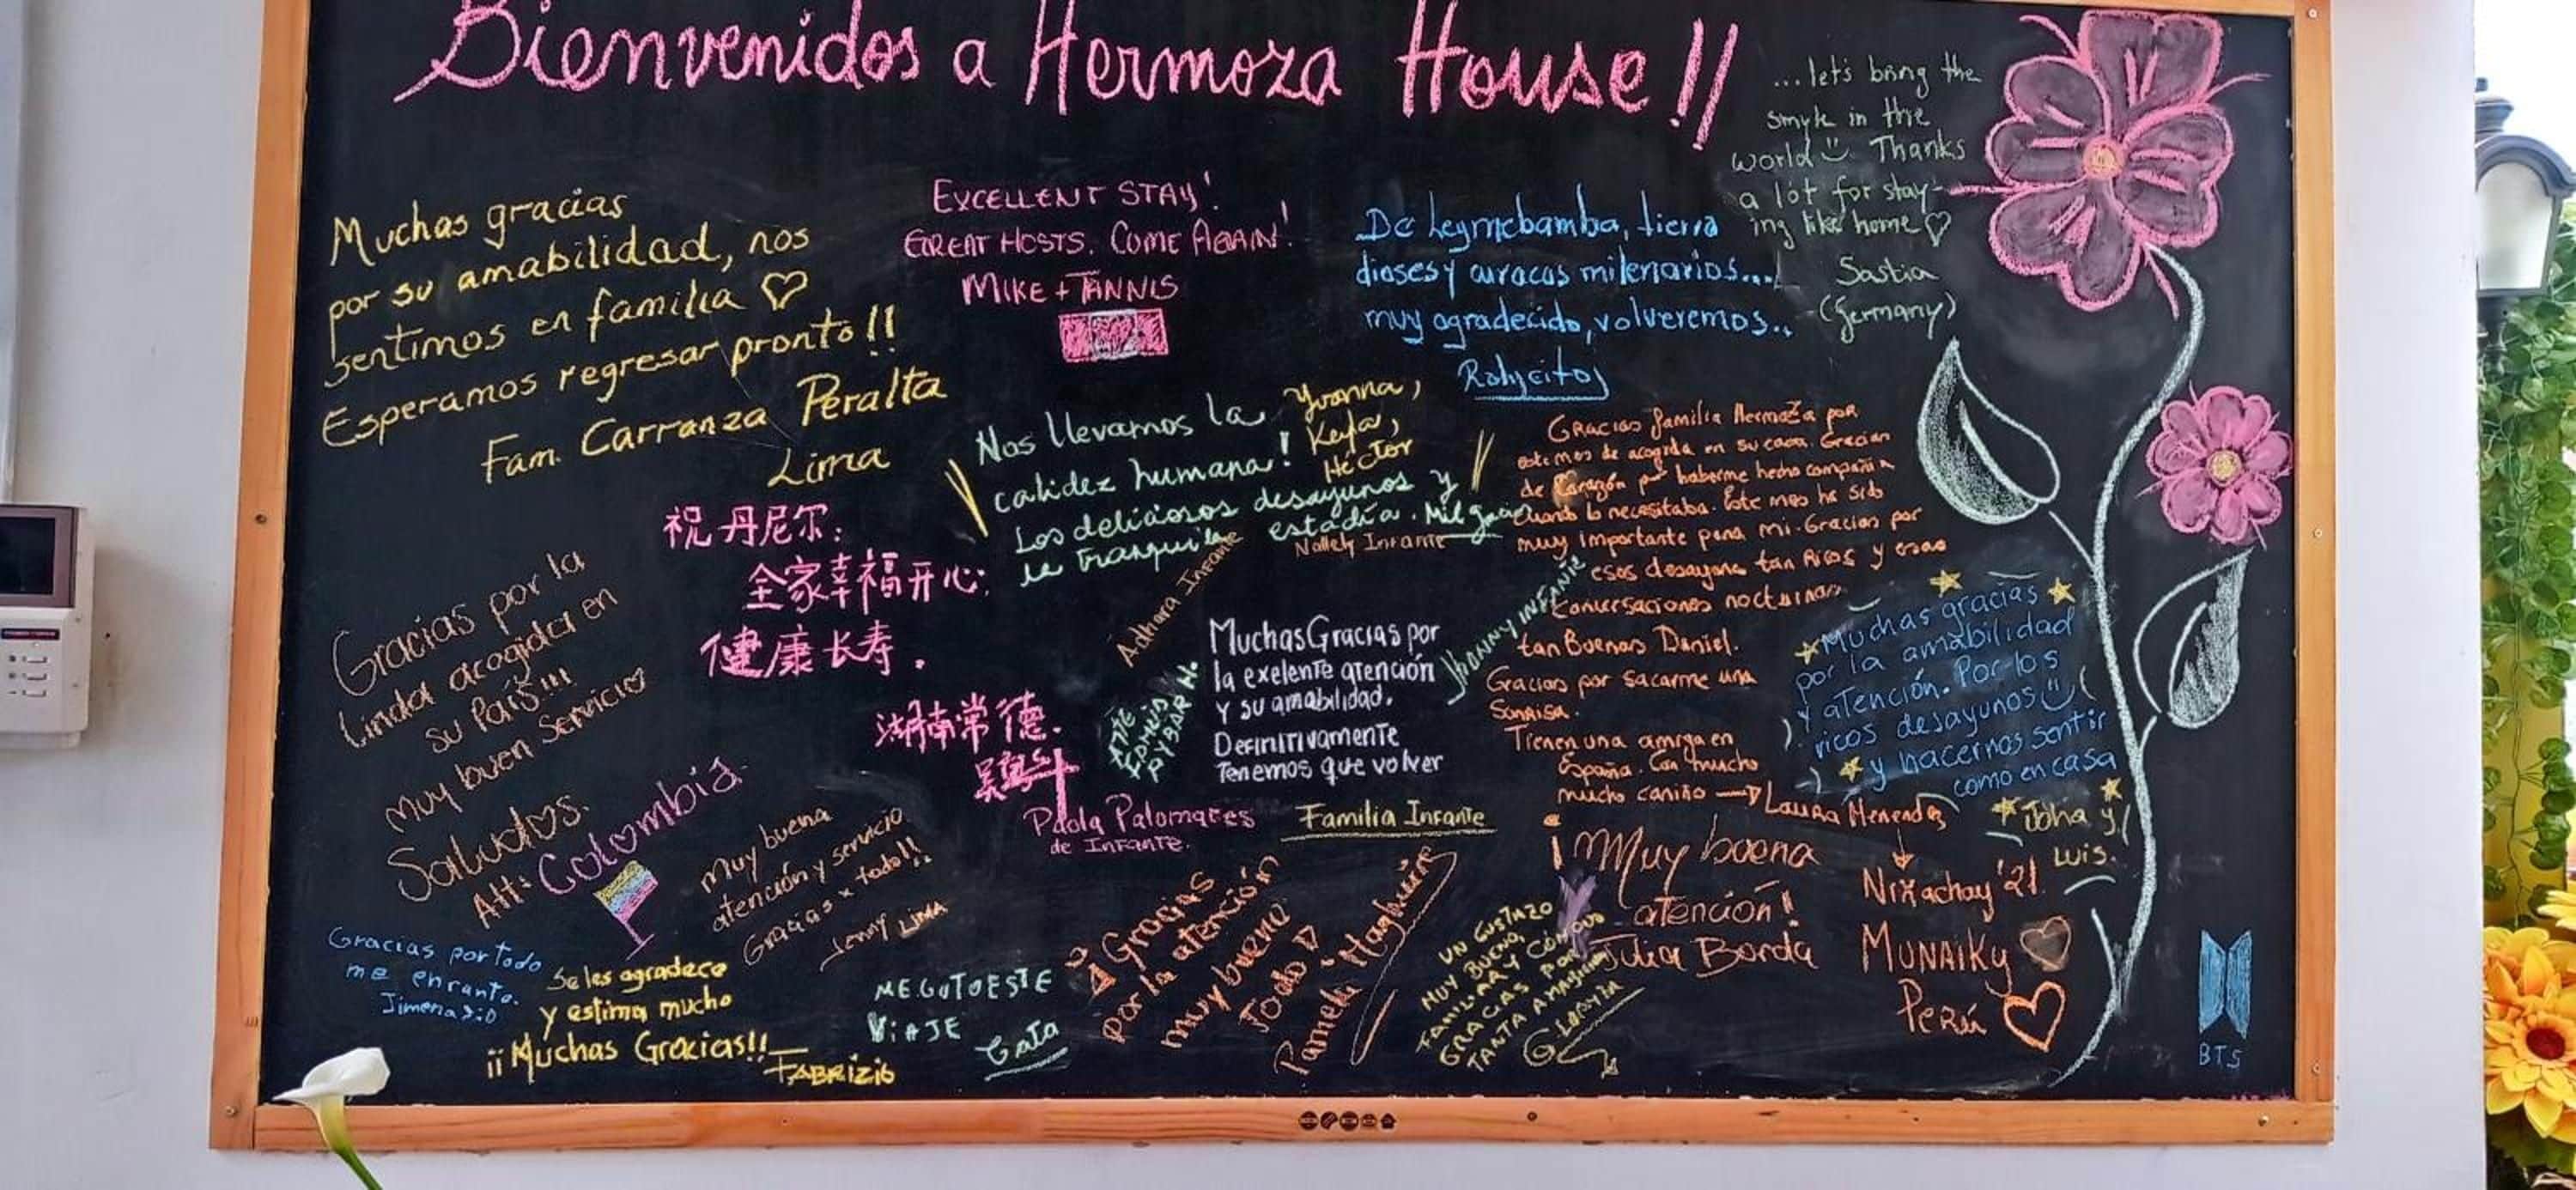 Bienvenidos a Hermoza House !!
...let's bring the
smyle in the
world Thanks
a lot for stay-
ing like home
Sastia
(Germany)
Muchas gracias
por su amabilidad, nos
sentimos en familia
Esperamos regresar pronto!!
Fam. Carranza Peralta
Lima
EXCELLENT STAY!
GREAT HOSTS. COME AGAIN!
MIKE + TANNIS
De Leymebamba, tierra
dioses y curacas milenarios...
muy agradecido, volveremos..
Nos llevamos la
calidez humana!
Los deliciosos desayunos y
la tranquila estadía. Mil gracias
Yvanna,
Keyla,
Héctor
祝丹尼尔:
全家幸福开心;
健康长寿.
湖南常德.
Gracias familia Hermoza por
este mes de acogida en su casa. Gracias
de corazón por haberme hecho compañia
cuando lo necesitaba. Este mes ha sido
muy importante para mi. Gracias por
esos desayunos tan Ricos y esas
conversaciones nocturnas
tan Buenas Daniel.
Gracias por sacarme una
Sonrisa.
Tienen una amiga en
España. Con mucho
mucho cariño → Laura Menendez
Nallely Infante
Adhara Infante
Jhonny INFANTE
Muchas Gracias por
la exelente atención
y su amabilidad.
Definitivamente
Tenemos que volver
Familia Infante
Paola Palomares
de Infante.
Gracias por la
linda acogida en
su País!!!
muy buen servicio
Saludos.
Att: Colombia.
Muchas gracias
por la amabilidad
y atención. Por los
ricos desayunos
y hacernos sentir
como en casa
Jbha y
Luis.
Muy buena
atención y servicio
Gracias x todo!!
Jenny LIMA
¡Muy buena
atención!
Julia Borda
Nixachay '21.
MUNAIKY
Perú
Gracias por todo
me encanto.
Se les agradece
y estima mucho
¡¡Muchas Gracias!!
FABRIZIO
ME GUTO ESTE
ViAJE
Cata
Gracias
por la atención
muy bueno
Todo
Pamela
UN GUSTAZO
MUY BUENO,
FAMILIAR Y CÓMODO
GRACIAS POR
TANTA AMABILIDAD
BTS